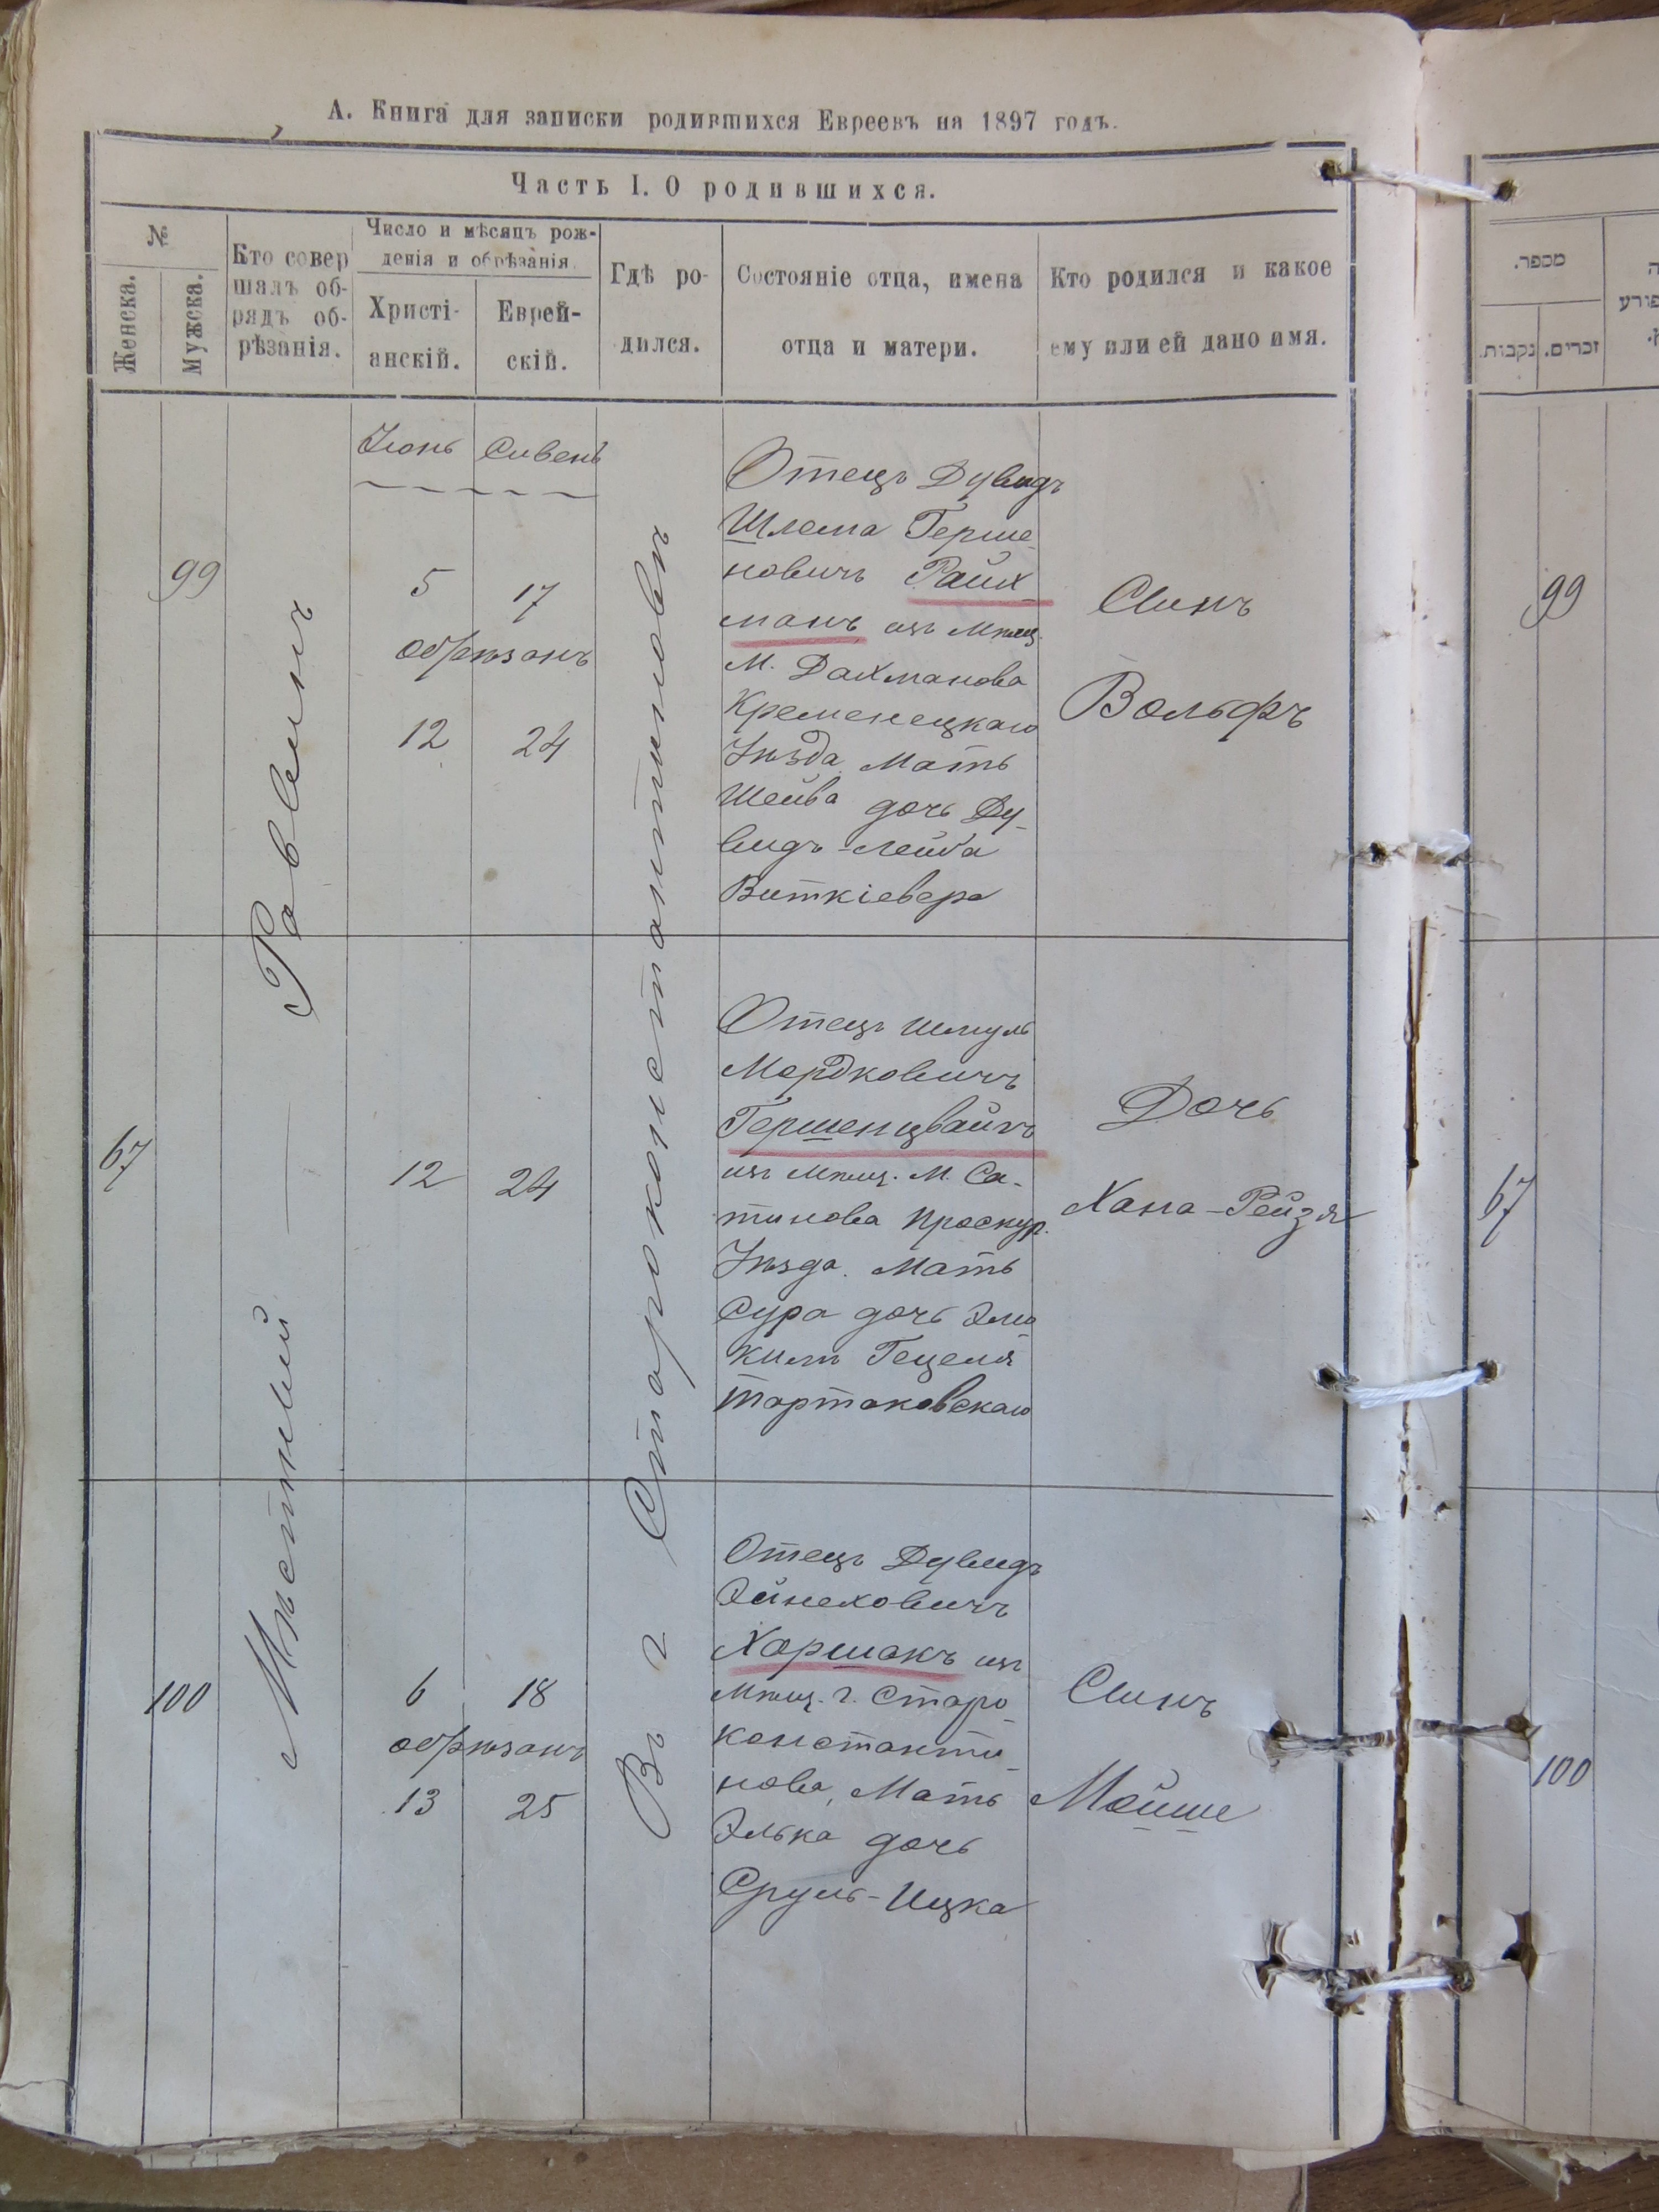 А. Книга для записки родившихся Евреевъ на 1897 годъ.
Часть I. О родившихся.
№
Женска.
Мужска.
Кто совер
шалъ об-
рядъ об-
рѣзанія.
Число и мѣсяцъ рож-
денія и обрѣзанія.
Христі-
анскій.
Еврей-
скій.
Гдѣ ро-
дился.
Состояніе отца, имена
отца и матери.
Кто родился и какое
ему или ей дано имя.
Іюнь Сивень
Мѣстный — Раввинъ
Въ г Староконстантиновѣ
99
5 17
обрѣзанъ
12 24
Отецъ Дувидъ
Шлема Герше
новичъ Райх-
манъ изъ Мѣщ.
М. Рахманова
Кременецкаго
Уѣзда Мать
Шейва дочь Ду-
видъ-Лейба
Виткіевера
Сынъ
Вольфъ
67
12 24
Отецъ Шмуль
Мордковичъ
Гершенцвайгъ
изъ Мѣщ. М. Са-
танова Проскур.
Уѣзда. Мать
Сура дочь Элиа
Кимъ Гецеля
Тартаковскаго
Дочь
Хана-Рейзя
100
6 18
обрѣзанъ
13 25
Отецъ Дувидъ
Эйнеховичъ
Хоршакъ изъ
Мѣщ. г. Старо
константи-
нова, Мать
Элька дочь
Сруль-Ицка
Сынъ
Мойше
מספר.
נקבות.
זכרים.
99
67
100